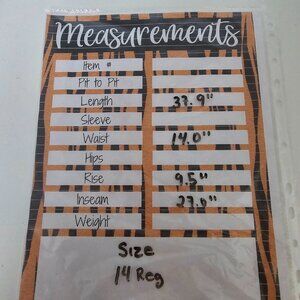 Measurements
Item #
Pit to Pit
Length 37.9"
Sleeve
Waist 14.0"
Hips
Rise 9.5"
Inseam 27.0"
Weight
Size
14 Reg